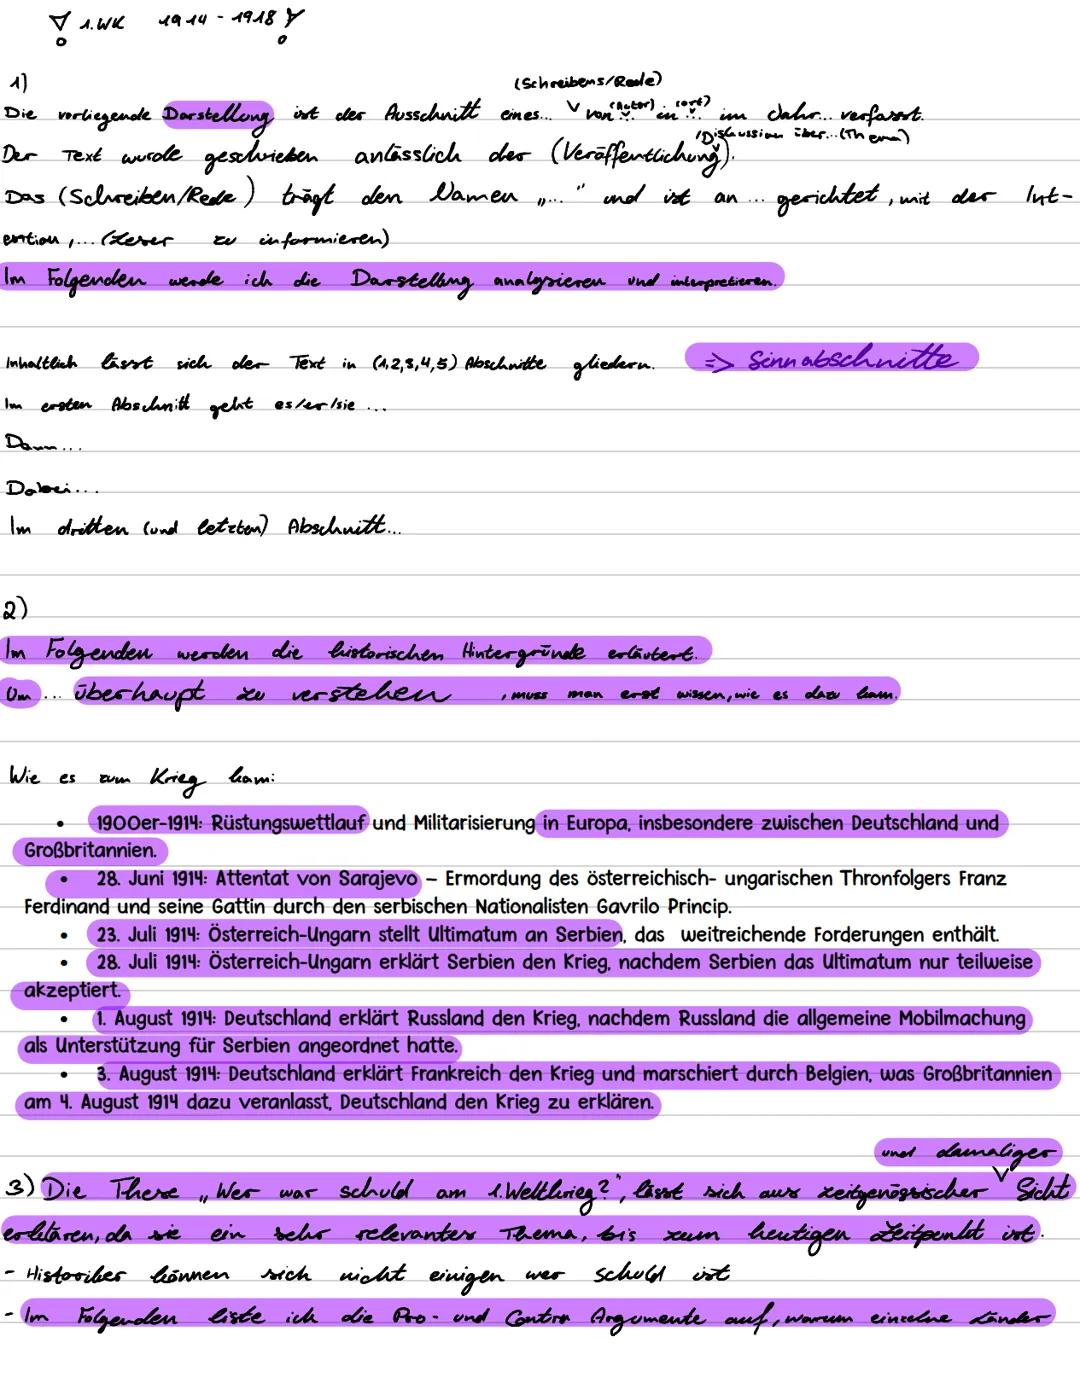 ! 1.WK 1914 - 1918 !
1)
(Schreibens/Rede)
Die vorliegende Darstellung ist der Ausschnitt eines... von (Autor) in (ort) im Jahr... verfasst.
/Diskussion über...(Thema)
Der Text wurde geschrieben anlässlich der (Veröffentlichung).
Das (Schreiben/Rede) trägt den Namen „..." und ist an ... gerichtet, mit der Int-
ention,... (Leser zu informieren)
Im Folgenden werde ich die Darstellung analysieren und interpretieren.
Inhaltlich lässt sich der Text in (1,2,3,4,5) Abschnitte gliedern. => Sinnabschnitte
Im ersten Abschnitt geht es/er/sie ...
Dann...
Dabei...
Im dritten (und letzten) Abschnitt...
2)
Im Folgenden werden die historischen Hintergründe erläutert.
Um ... überhaupt zu verstehen, muss man erst wissen, wie es dazu kam.
Wie es zum Krieg kam:
• 1900er-1914: Rüstungswettlauf und Militarisierung in Europa, insbesondere zwischen Deutschland und
Großbritannien.
• 28. Juni 1914: Attentat von Sarajevo – Ermordung des österreichisch- ungarischen Thronfolgers Franz
Ferdinand und seine Gattin durch den serbischen Nationalisten Gavrilo Princip.
• 23. Juli 1914: Österreich-Ungarn stellt Ultimatum an Serbien, das weitreichende Forderungen enthält.
• 28. Juli 1914: Österreich-Ungarn erklärt Serbien den Krieg, nachdem Serbien das Ultimatum nur teilweise
akzeptiert.
• 1. August 1914: Deutschland erklärt Russland den Krieg, nachdem Russland die allgemeine Mobilmachung
als Unterstützung für Serbien angeordnet hatte.
• 3. August 1914: Deutschland erklärt Frankreich den Krieg und marschiert durch Belgien, was Großbritannien
am 4. August 1914 dazu veranlasst, Deutschland den Krieg zu erklären.
und damaliger
3) Die These „Wer war schuld am 1.Weltkrieg?", lässt sich aus zeitgenössischer Sicht
erklären, da sie ein sehr relevantes Thema, bis zum heutigen Zeitpunkt ist.
- Historiker können sich nicht einigen wer schuld ist
- Im Folgenden liste ich die Pro- und Contra Argumente auf, warum einzelne Länder